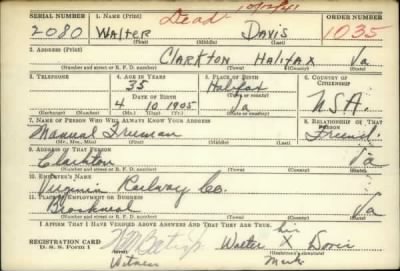 SERIAL NUMBER 1. NAME (Print) Dead ORDER NUMBER
2080 Walter Davis 1035
(First) (Middle) (Last)
2. ADDRESS (Print)
Clarkton Halifax Va
(Number and street or R. F. D. number) (Town) (County) (State)
3. TELEPHONE 4. AGE IN YEARS 5. PLACE OF BIRTH 6. COUNTRY OF CITIZENSHIP
35 Halifax
DATE OF BIRTH (Town or county)
4 10 1905 Va USA.
(Exchange) (Number) (Mo.) (Day) (Yr.) (State or country)
7. NAME OF PERSON WHO WILL ALWAYS KNOW YOUR ADDRESS 8. RELATIONSHIP OF THAT PERSON
Manual Freeman Friend.
(Mr., Mrs., Miss) (First) (Middle) (Last)
9. ADDRESS OF THAT PERSON
Clarkton Va
(Number and street or R. F. D. number) (Town) (County) (State)
10. EMPLOYER'S NAME
Virginia Railway Co.
11. PLACE OF EMPLOYMENT OR BUSINESS
Brookneal Va
(Number and street or R. F. D. number) (Town) (County) (State)
I AFFIRM THAT I HAVE VERIFIED ABOVE ANSWERS AND THAT THEY ARE TRUE.
his
REGISTRATION CARD Walter X Davis
D. S. S. Form 1 (Registrant's signature)
Witness Mark